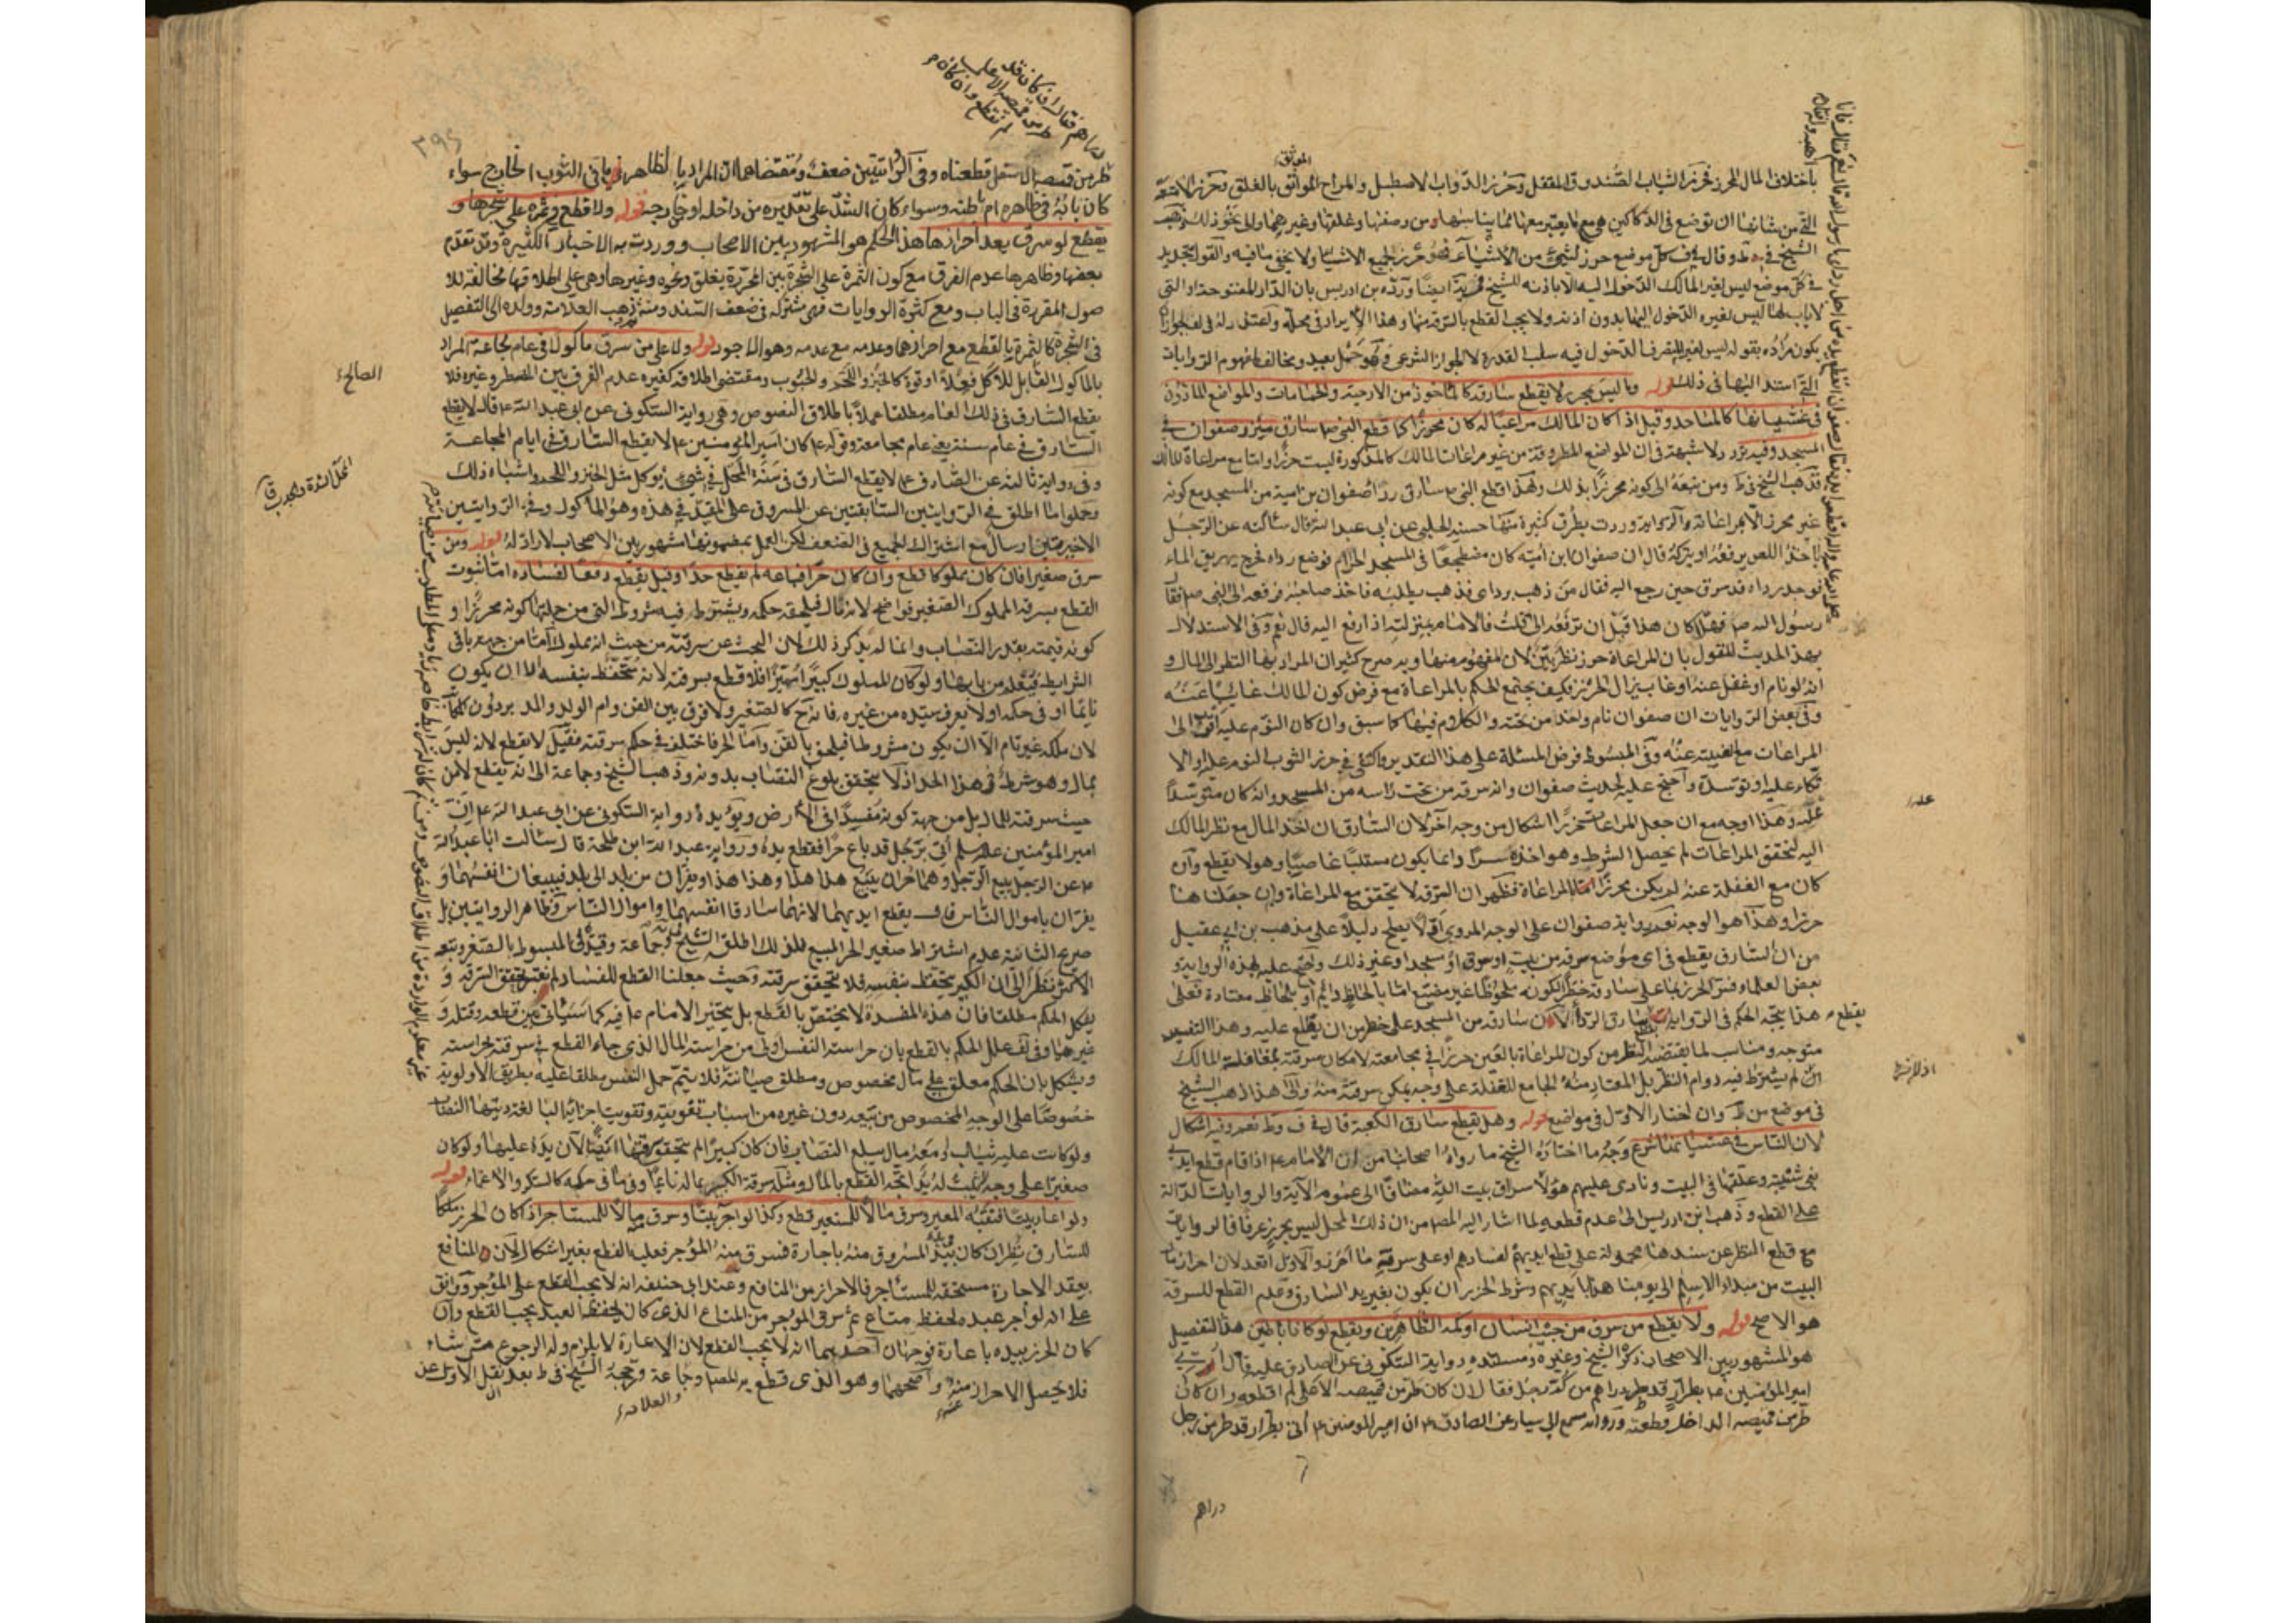 باختلاف المال المحرز فحرز الثياب الصندوق المقفل وحرز الدواب الاصطبل والمراح الموثق بالغلق وحرز الامتعة
التي من شانها ان توضع في الدكاكين هي مع ما يعتبر معها مما يناسبها ومن وصفها وغلقها وغيرهما والى نحو ذلك ذهب
الشيخ في ط وقال في ف كل موضع حرز لشيء من الاشياء فهو حرز لجميع الاشياء ولا يخفى ما فيه والقول بتحديد
في كل موضع ليس لغير المالك الدخول اليه الا باذنه للشيخ في يه ايضا ورده بن ادريس بان الدار المفتوحة او التي
لا باب لها ليس لغيره الدخول اليها بدون اذنه ولا يجب القطع بالسرقة منها وهذا الايراد في محله واعتذر له في لف بجواز ان
يكون مراده بقوله ليس لغير المتصرف الدخول فيه سلب القدرة لا الجواز الشرعي وهو حمل بعيد ومخالف لمفهوم الروايات
التي استند اليها في ذلك قوله وما ليس بمحرز لا يقطع سارقه كالماخوذ من الارحية والحمامات والمواضع الماذون
في غشيانها كالمساجد وقيل اذا كان المالك مراعيا له كان محرزا كما قطع النبي ص سارق مئزر صفوان في
المسجد وفيه تردد لا شبهة في ان المواضع المطروقة من غير مراعات المالك كالمذكورة ليست حرزا واما مع مراعاة المالك
فذهب الشيخ في ط ومن تبعه الى كونه محرزا بذلك ولهذا قطع النبي ص سارق رداء صفوان بن امية من المسجد مع كونه
غير محرز الا بمراعاته والرواية وردت بطرق كثيرة منها حسنة الحلبي عن ابي عبد الله قال سالته عن الرجل
ياخذ اللص يرفعه او يتركه قال ان صفوان ابن امية كان مضطجعا في المسجد الحرام فوضع رداه فخرج يهريق الماء
فوجد رداه قد سرق حين رجع اليه فقال من ذهب برداي فذهب يطلبه فاخذ صاحبه فرفعه الى النبي ص فقال
رسول الله ص فهلا كان هذا قبل ان ترفعه الي قلت فالامام بمنزلته اذا رفع اليه قال نعم وفي الاستدلال
بهذا الحديث للقول بان المراعاة حرز نظر بين لان المفهوم منها وبه صرح كثير ان المراد بها النظر الى المال و
انه لو نام او غفل عنه او غاب زال الحرز فكيف يجتمع الحكم بالمراعاة مع فرض كون المالك غايبا عنه
وفي بعض الروايات ان صفوان نام واخذ من تحته والكلام فيها كما سبق وان كان النوم عليه اقرب الى
المراعات مع الغيبة عنه وفي المبسوط فرض المسئلة على هذا التقدير واكتفى في حرز الثوب النوم عليه او الا
تكاء عليه او توسده واحتج عليه بحديث صفوان وانه سرقه من تحت راسه من المسجد وانه كان متوسدا
عليه وهذا اوجه مع ان جعل المراعات حرزا اشكال من وجه آخر لان السارق ان اخذ المال مع نظر المالك
اليه لتحقق المراعات لم يحصل الشرط وهو اخذه سرا وانما يكون مستلبا غاصبا وهو لا يقطع وان
كان مع الغفلة عنه لم يكن محرزا بالمراعاة فظهر ان السرقة لا يتحقق مع المراعاة وان جعلناها
حرزا وهذا هو الوجه نعم رواية صفوان على الوجه المروي اولا يصلح دليلا على مذهب بن ابي عقيل
من ان السارق يقطع في اي موضع سرق من بيت او سوق او مسجد او غير ذلك ونص عليه بهذه الرواية و
بعض العلماء فسر الحرز بما على سارقه خطر لكونه ملحوظا غير مضيع اما بالحاظ دايم او بلحاظ معتادة فعلى
هذا يتجه الحكم في الرواية بقطع سارق الرداء لان سارقه من المسجد على خطر من ان يطلع عليه وهذا التفسير
متوجه ومناسب لما يقتضيه النظر من كون المراعاة بالعين حرزا في مجامعته لامكان سرقته بمغافلة المالك
ان لم يشترط فيه دوام النظر بل المعتاد منه الجامع للغفلة على وجه يمكن سرقته منه والى هذا ذهب الشيخ
في موضع من ط وان اختار الاول في مواضع قوله وهل يقطع سارق الكعبة قال في ف وط نعم وفيه اشكال
لان الناس في غشيانها شرع وجه ما اختاره الشيخ ما رواه اصحابنا من ان الامام ع اذا قام قطع ايدي
بني شيبة وعلقها في البيت ونادى عليهم هؤلاء سراق بيت الله مضافا الى عموم الآية والروايات الدالة
على القطع وذهب ابن ادريس الى عدم قطعه لما اشار اليه المص من ان ذلك المحل ليس بحرز عرفا فالروايات
مع قطع النظر عن سندها محمولة على قطع ايديهم لفسادهم او على سرقة ما احرز والاول اقعد لان احراز ما
البيت من مبداء الاسلام الى يومنا هذا بايديهم وشرط الحرز ان يكون بغير يد السارق وعدم القطع للسرقة
هو الاصح قوله ولا يقطع من سرق من جيب انسان او كمه الظاهرين ويقطع لو كانا باطنين هذا التفصيل
هو المشهور بين الاصحاب ذكره الشيخ وغيره ومستنده رواية السكوني عن الصادق عليه قال اتي
امير المؤمنين ع بطرار قد طر دراهم من كم رجل فقال ان كان طر من قميصه الاعلى لم اقطعه وان كان
طر من قميصه الداخل قطعته ورواية مسمع ابي سيار عن الصادق ع ان امير المؤمنين ع اتي بطرار قد طر من رجل
دراهم
دراهم فقال ان كان قد
طر من قميصه الاعلى
لم نقطع وان كان
٣٩٥
طر من قميصه الاسفل قطعناه وفي الروايتين ضعف ومقتضاهما ان المراد بالظاهر ما في الثوب الخارج سواء
كان بابه في ظاهره ام باطنه وسواء كان الشد على تقديره من داخله او خارجه قوله ولا قطع في ثمره على شجرها و
يقطع لو سرق بعد احرازها هذا الحكم هو المشهور بين الاصحاب ووردت به الاخبار الكثيرة وقد تقدم
بعضها وظاهرها عدم الفرق مع كون الثمرة على الشجرة بين المحرزة بغلق ونحوه وغيرها وهي على اطلاقها مخالفة للا
صول المقررة في الباب ومع كثرة الروايات فهي مشتركة في ضعف السند ومنه ذهب العلامة وولده الى التفصيل
في الشجرة كالثمرة بالقطع مع احرازهما وعدمه مع عدمه وهو الاجود قوله ولا على من سرق ماكولا في عام مجاعة المراد
بالماكول القابل للاكل فعلا او قوة كالخبز واللحم والحبوب ومقتضى اطلاقه كغيره عدم الفرق بين المضطر وغيره فلا
يقطع السارق في ذلك العام مطلقا عملا باطلاق النصوص وهي رواية السكوني عن ابي عبد الله ع قال لا يقطع
السارق في عام سنة يعني عام مجاعة وقوله ع كان امير المؤمنين ع لا يقطع السارق في ايام المجاعة
وفي رواية ثالثة عن الصادق ع لا يقطع السارق في سنة المحل في شيء يؤكل مثل الخبز واللحم واشباه ذلك
وحملوا ما اطلق في الروايتين السابقتين عن المسروق على المقيد في هذه وهو الماكول وفي الروايتين
الاخيرتين ارسال مع اشتراك الجميع في الضعف لكن العمل بمضمونها مشهور بين الاصحاب لا راد له قوله ومن
سرق صغيرا فان كان مملوكا قطع وان كان حرا فباعه لم يقطع حدا وقيل يقطع دفعا لفساده اما ثبوت
القطع بسرقة المملوك الصغير فواضح لانه مال فيلحقه حكمه ويشترط فيه شروطه التي من جملتها كونه محرزا و
كونه قيمته بقدر النصاب وانما لم يذكر ذلك لان البحث عن سرقته من حيث انه مملوك اما من جهة باقي
الشرايط فيعلم من بابها ولو كان المملوك كبيرا مميزا فلا قطع بسرقته لانه متحفظ بنفسه الا ان يكون
نايما او في حكمه او لا يعرف سيده من غيره فانه ح كالصغير ولا فرق بين القن وام الولد والمدبر دون المكاتب
لان ملكه غير تام الا ان يكون مشروطا فيلحق بالقن واما الحر فاختلف في حكم سرقته فقيل لا يقطع لانه ليس
بمال وهو شرط في هذا الحد اذ لا يتحقق بلوغ النصاب بدونه وذهب الشيخ وجماعة الى انه يقطع لا من
حيث سرقته للمال بل من جهة كونه مفسدا في الارض ويؤيده رواية السكوني عن ابي عبد الله ع ان
امير المؤمنين عليه السلم اتي برجل قد باع حرا فقطع يده ورواية عبد الله ابن طلحة قال سالت ابا عبد الله
ع عن الرجل يبيع الرجل وهما حران يبيع هذا هذا وهذا هذا ويفران من بلد الى بلد فيبيعان انفسهما و
يفران باموال الناس قال يقطع ايديهما لانهما سارقا انفسهما واموال الناس وظاهر الروايتين بل
صريح الثانية عدم اشتراط صغير الحر المبيع فلذلك اطلق الشيخ في يه وجماعة وقيده في المبسوط بالصغير وتبعه
الاكثر نظرا الى ان الكبير يتحفظ بنفسه فلا يتحقق سرقته وحيث جعلنا القطع للفساد لم يعتبر تحقق السرقة و
يشكل الحكم مطلقا فان هذه المفسدة لا يختص بالقطع بل يتخير الامام ع فيه كما سياتي بين قطعه وقتله و
غيرهما وفي لف علل الحكم بالقطع بان حراسة النفس اولى من حراسة المال الذي جاء القطع في سرقته لحراسته
ويشكل بان الحكم معلق على مال مخصوص ومطلق صيانته فلا يتم حمل النفس مطلقا عليه بطريق الاولوية
خصوصا على الوجه المخصوص من يتعد دون غيره من اسباب تفويته وتفويت اجزائه البالغة ديتها النصاب
ولو كانت عليه ثياب ومعه مال يبلغ النصاب فان كان كبيرا لم يتحقق سرقتها ايضا لان يده عليها ولو كان
صغيرا على وجه لا يثبت له يد اتجه القطع بالمال ومثله سرقة الكبير بماله نائما وفي ما في حكمه كالسكر والاغماء قوله
ولو اعار بيتا فنقبه المعير وسرق مالا للمستعير قطع وكذا لو آجر بيتا وسرق مالا للمستاجر اذا كان الحرز ملكا
للسارق نظر ان كان بيد المسروق منه باجارة فسرق منه المؤجر فعليه القطع بغير اشكال لان المنافع
بعقد الاجارة مستحقة للمستاجر فالاحراز من المنافع وعند ابي حنيفة انه لا يجب القطع على المؤجر ووافق
على انه لو آجر عبده لحفظ متاع ثم سرق المؤجر من المتاع الذي كان يحفظه العبد يجب القطع وان
كان الحرز بيده باعارة فوجهان احدهما انه لا يجب القطع لان الاعارة لا يلزم وله الرجوع متى شاء
فلا يحصل الاحراز عنه واصحهما وهو الذي قطع به المص وجماعة ورجحه الشيخ في ط بعد نقل الاول عن